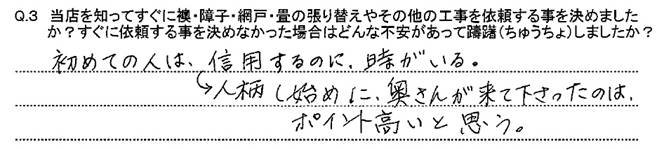 Q.3　当店を知ってすぐに襖・障子・網戸・畳の張り替えやその他の工事を依頼する事を決めました
か？すぐに依頼する事を決めなかった場合はどんな不安があって躊躇（ちゅうちょ）しましたか？
初めての人は、信用するのに、時がいる。
↳人柄（始めに、奥さんが来て下さったのは、
ポイント高いと思う。